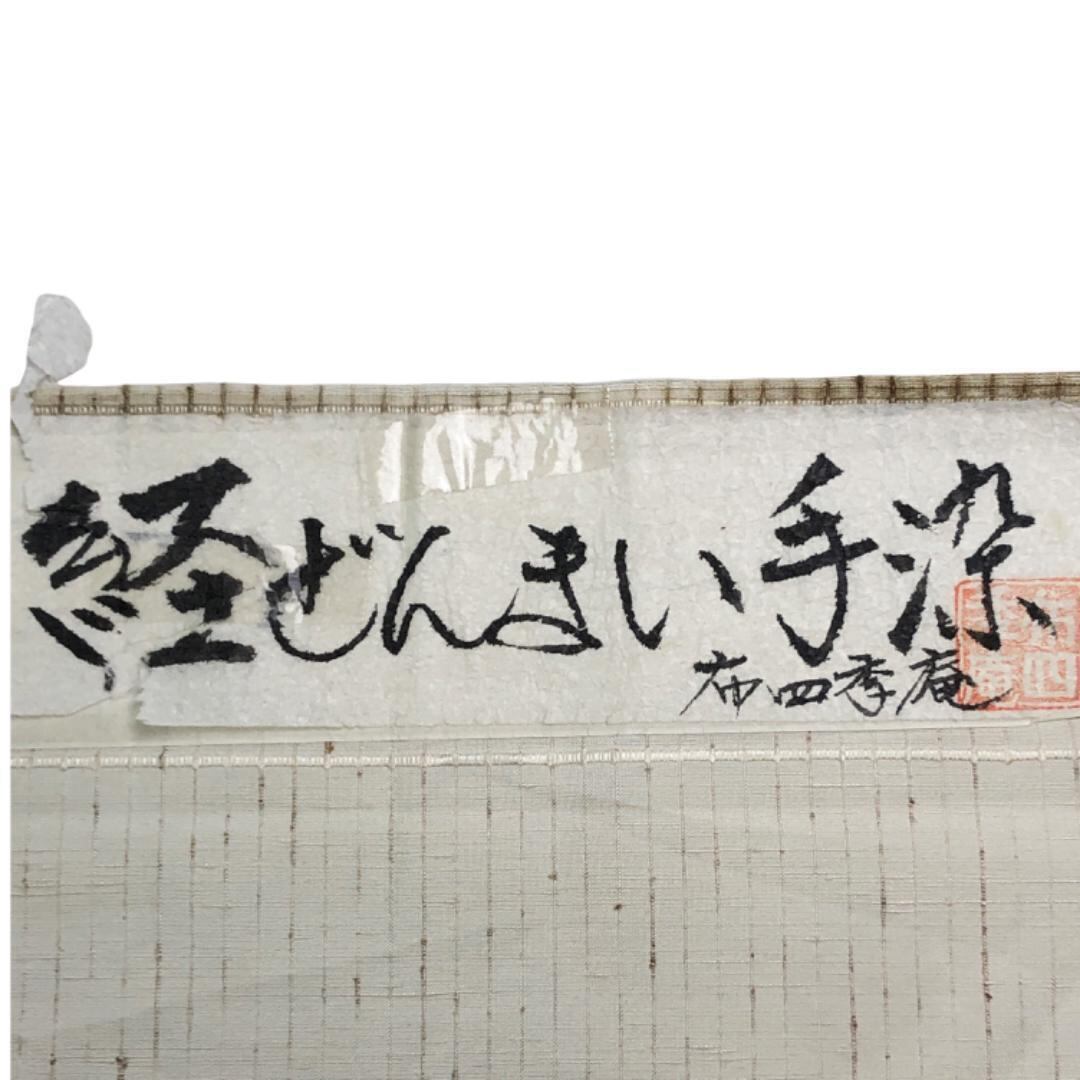 経ぜんまい手染
布四季庵
布四季庵